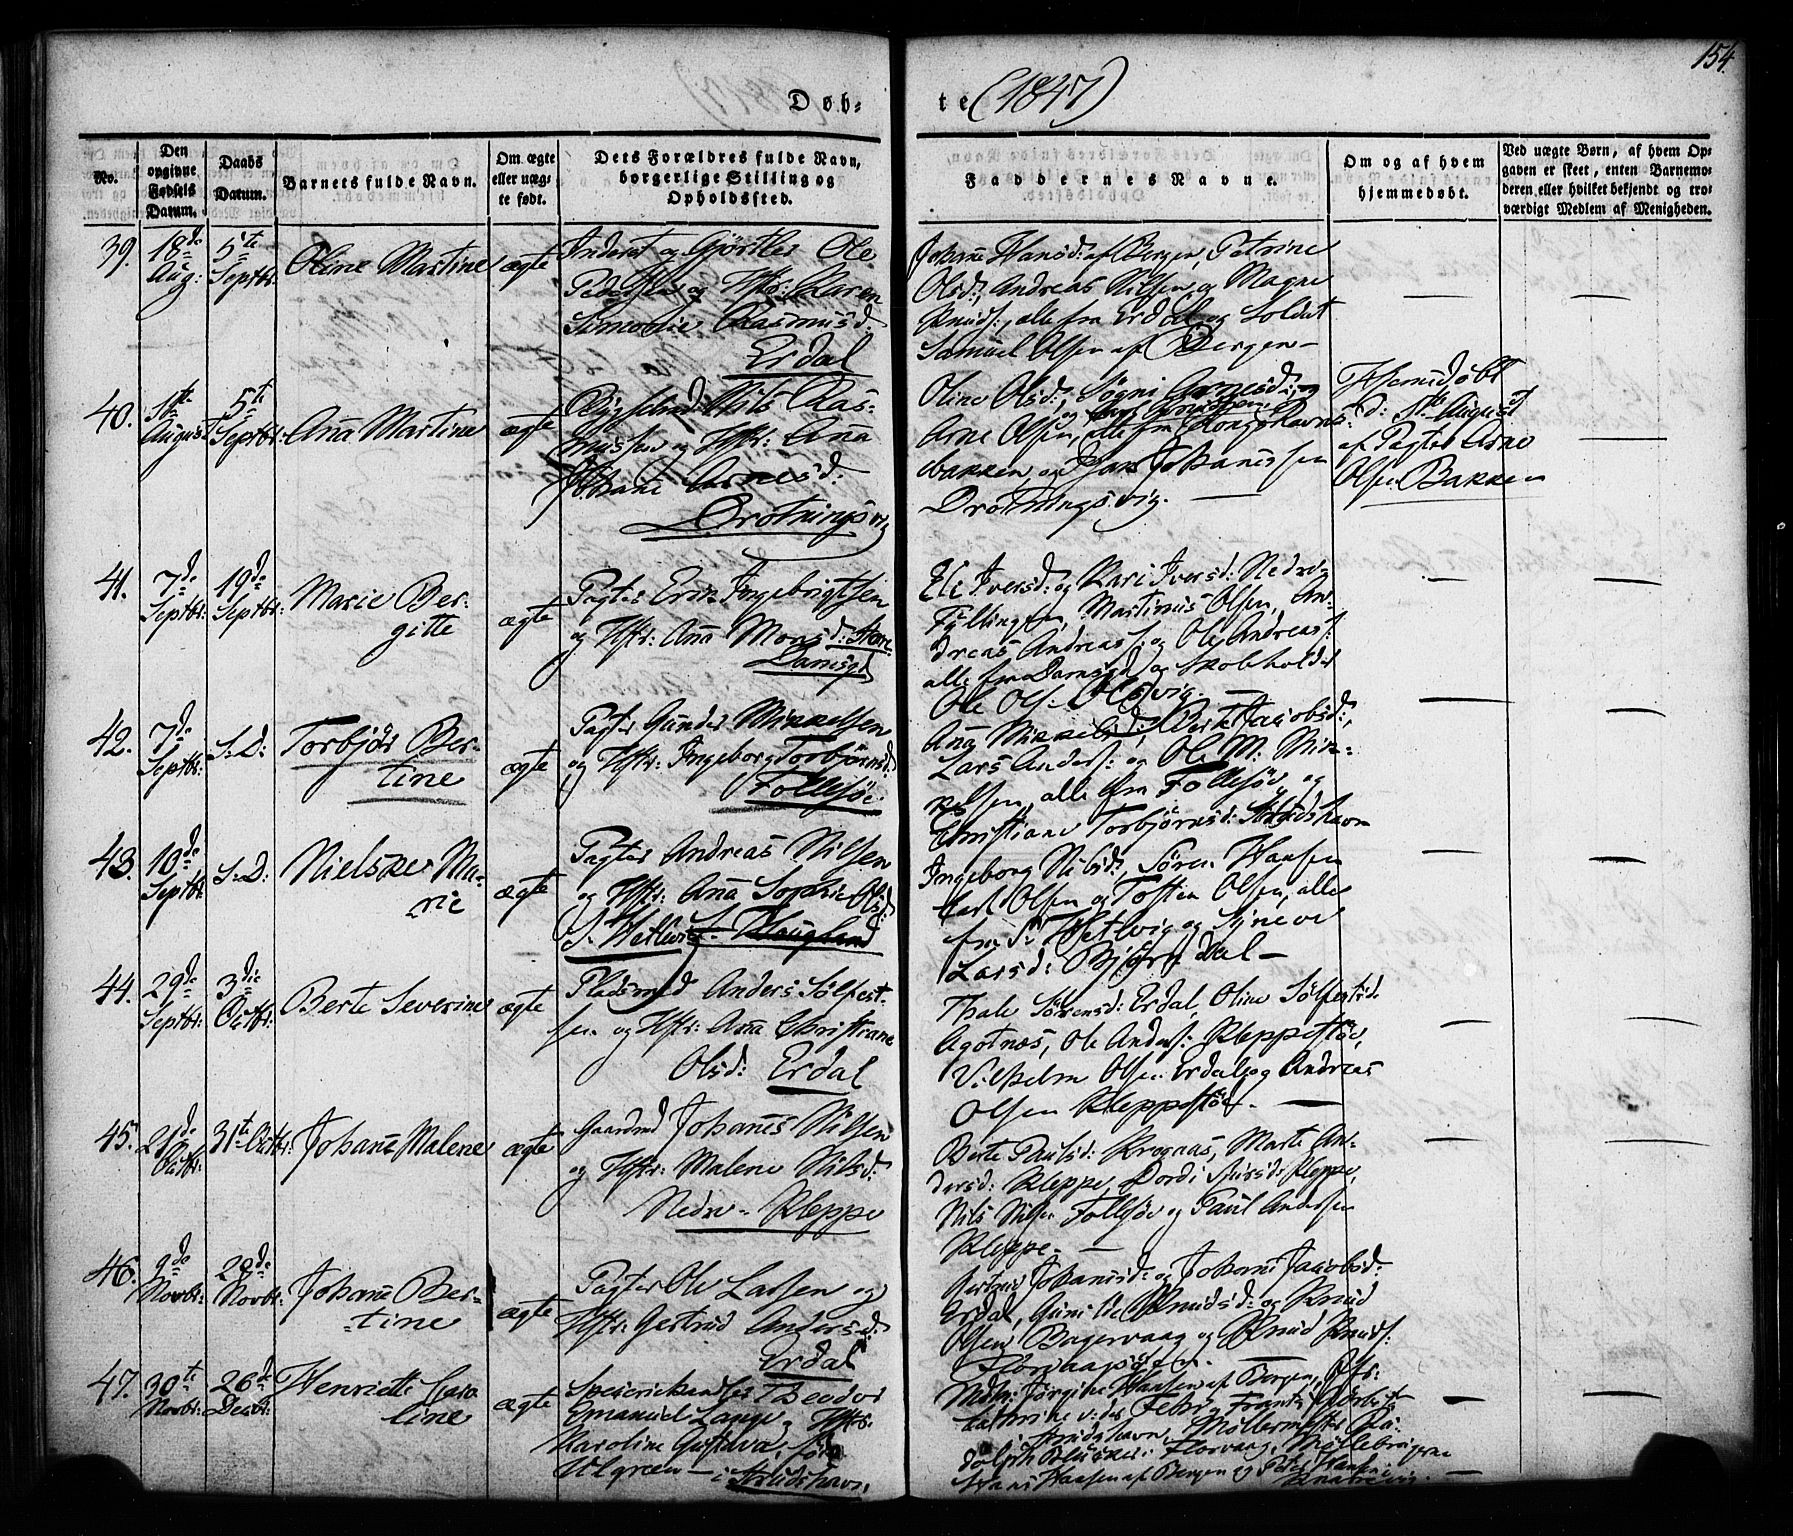 154.
Døb-
te (1847)
No.
Den opgivne Fødsels Datum.
Daabs Datum.
Barnets fulde Navn.
Om ægte eller uæg- te født.
Dets Forældres fulde Navn, borgerlige Stilling og Opholdssted.
Faddernes Navne.
Om og af hvem hjemmedøbt.
Ved uægte Børn, af hvem Op- gaven er skeet, enten Barnemo- deren eller hvilket bekjendt og tro- værdigt Medlem af Menigheden.
39. 18de Aug: 5te Septbr: Oline Martine ægte
Ole
Pedersen og Hstr: Karen
Rasmusd:
Erdal
Johane Hansd: af Bergen, Petrine
Olsd:, Andreas Nilsen og Magne
Knuds:, alle fra Erdal og Soldat
Samuel Olsen af Bergen –
40. 1ste August 5te Septbr: Ana Martine ægte
Nils Ras-
mussen og Hstr: Ana
Johane Arnesd:
Drotningsvig
Oline Olsd:, Søgni Arnesd: og
Arne Olsen, alle fra Kongshavns-
bakken, og Johanessen
Drotningsvig. –
Hjemedøbt
d: 1ste August
af Pagter Arne
Olsen Bakken
41. 7de Septbr: 19de Septbr: Marie Ber-
gitte
ægte
Pagter Erik Ingebrigtsen
og Hstr: Ana Monsd: Store
Damsgd
Eli Iversd: og Kari Iversd: Nedre-
Fyllingen, Martinus Olsen, An-
dreas Andreass: og Ole Andreass:
alle fra Damsgd og Skoleholder
Ole Olsen Olsvig. –
42. 7de Septbr: S: D: Torbjør Ber-
tine
ægte
Pagter Gunder Mikkelsen
og Hstr: Ingeborg Torbjørnsd:
Follesøe.
Ana Mikkelsd:, Berte Jacobsd:,
Lars Anders: og Ole M: Mik-
kelsen, alle fra Follesøe, og
Christiane Torbjørnsd: Strudshavn
43. 10de Septbr: S: D: Nielske Ma-
rie
ægte
Pagter Andreas Nilsen
og Hstr: Ana Sophie Olsd:
S. Hetlevig
Ingeborg Nilsd:, Søren Hansen
Carl Olsen og Tosten Olsen, alle
fra S: Hetlevig og Synneve
Larsd: Bjørndal –
44. 29de Septbr: 3die Octbr: Berte Severine ægte
Pladsmd Anders Sølfest-
sen og Hstr: Ana Christiane
Olsd: Erdal
Thale Sørensd: Erdal, Oline Sølfestsd:
Agotnæs, Ole Anders: Kleppestøe,
Vilhelm Olsen Erdal og Andreas
Olsen Kleppestøe. –
45. 21de Octbr: 31te Octbr: Johane Malene ægte
Gaardmd Johanes Nilsen
og Hstr: Malene Nilsd:
Nedre – Kleppe
Berte Paulsd: Krognæs, Marte An-
dersd: Kleppe, Dordi Kleppe,
Nils Nilsen Follesøe og Paul Andersen
Kleppe. –
46. 9de Novbr: 28de Novbr: Johane Ber-
tine
ægte
Pagter Ole Larsen og
Hstr: Gertrud Andersd:
Erdal
Gertrud Johanesd: og Johane Jacobsd:
Erdal, Gunilde Knudsd: og Knud
Olsen Bagervaag og Knud Knuds:
47. 30te Novbr: 26de Decbr: Henriette Caro
line
ægte
Emanuel Lange og Hstr:
Karoline Gustava, født
Ulgreen – i Strudshavn.
Mdm: Jørgine Hansen af Bergen,
Strudshavn, Møllermester
Florvaag, Møllebruger
Hans Hansen af Bergen og Peter Hansen